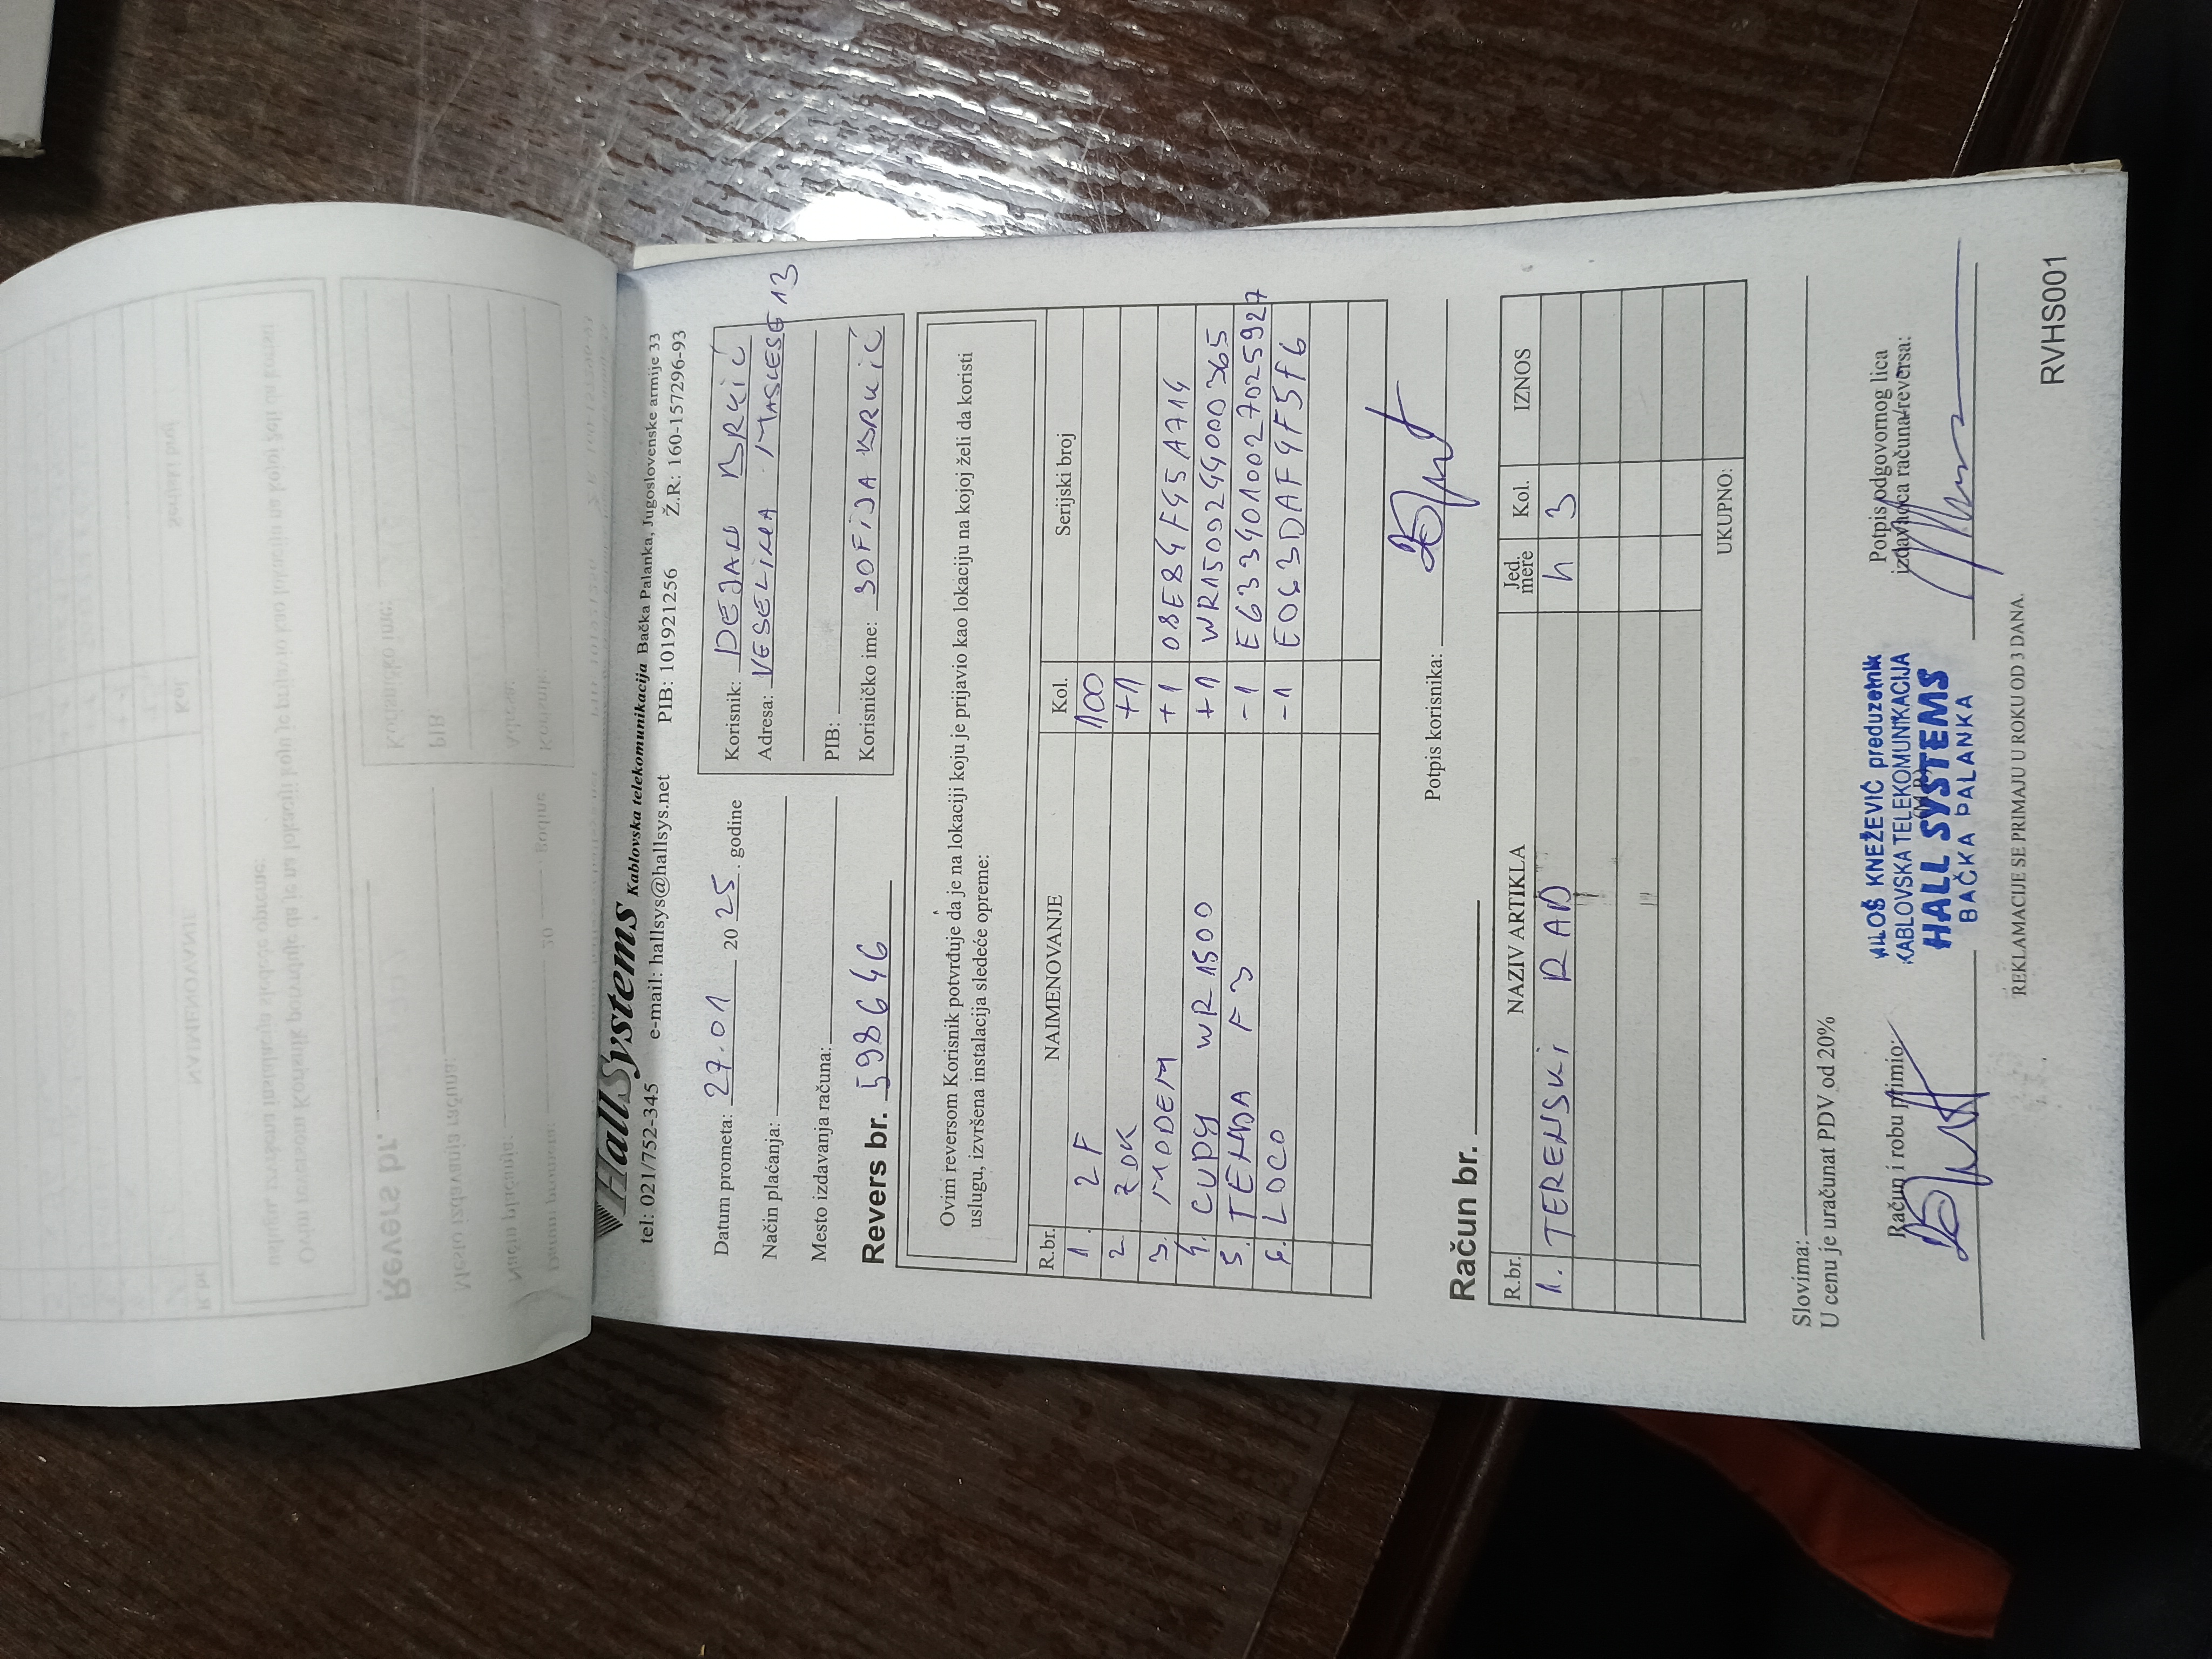 HallSystems Kablovska telekomunikacija Bačka Palanka, Jugoslovenske armije 33
tel: 021/752-345 e-mail: hallsys@hallsys.net PIB: 101921256 Ž.R: 160-157296-93
Datum prometa: 27.01 20 25. godine
Način plaćanja:
Mesto izdavanja računa:
Revers br. 598646
Korisnik: DEJAN BRKIĆ
Adresa: VESELINA MASLEŠE 13
PIB:
Korisničko ime: SOFIJA BRKIĆ
Ovim reversom Korisnik potvrđuje da je na lokaciji koju je prijavio kao lokaciju na kojoj želi da koristi
uslugu, izvršena instalacija sledeće opreme:
R.br. NAIMENOVANJE Kol. Serijski broj
1. 2F 100
2. ZOK +1
3. MODEM +1 08E84F45A714
4. CUDY WR1500 +1 WR15002440000365
5. TENDA F3 -1 E6339010027025927
6. LOCO -1 E063DAF4F5F6
Potpis korisnika:
Račun br.
R.br. NAZIV ARTIKLA Jed. mere Kol. IZNOS
1. TERENSKI RAD h 3
UKUPNO:
Slovima:
U cenu je uračunat PDV od 20%
Račun i robu primio:
MILOŠ KNEŽEVIĆ preduzetnik
KABLOVSKA TELEKOMUNIKACIJA
HALL SYSTEMS
BAČKA PALANKA
Potpis odgovornog lica
izdavaoca računa/reversa:
REKLAMACIJE SE PRIMAJU U ROKU OD 3 DANA.
RVHS001